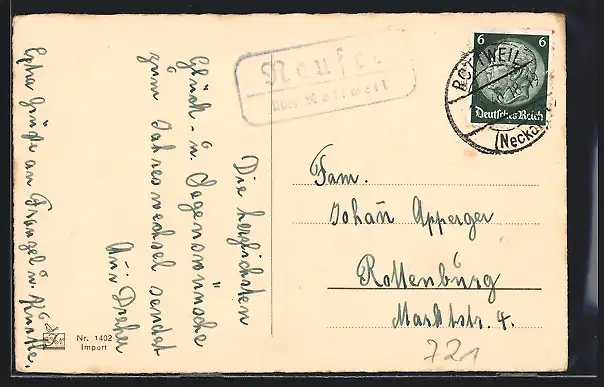 Die herzlichsten
Glück- u. Segenswünsche
zum Jahreswechsel sendet
Aur. Dreher
Extra Grüße an
Neufra
über Rottweil
ROTTWEIL
(Neckar)
6 6
Deutsches Reich
Fam.
Johan Apperger
Rottenburg
Marktstr. 4.
721
Nr. 1402
Import